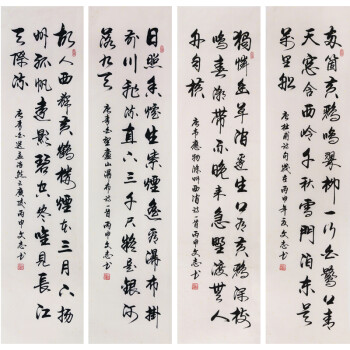 兩箇黃鸝鳴翠柳一行白鷺上青
天窗含西嶺千秋雪門泊東吳
萬里船
唐杜甫詩句歲在丙申年夏文志書
獨憐幽草澗邊生上有黃鸝深樹
鳴春潮帶雨晚來急野渡無人
舟自橫
唐韋應物滁州西澗詩一首丙申文志書
日照香爐生紫煙遙看瀑布掛
前川飛流直下三千尺疑是銀河
落九天
唐李白望廬山瀑布詩一首丙申文志書
故人西辭黃鶴樓煙花三月下揚
州孤帆遠影碧空盡唯見長江
天際流
唐李白送孟浩然之廣陵丙申文志書